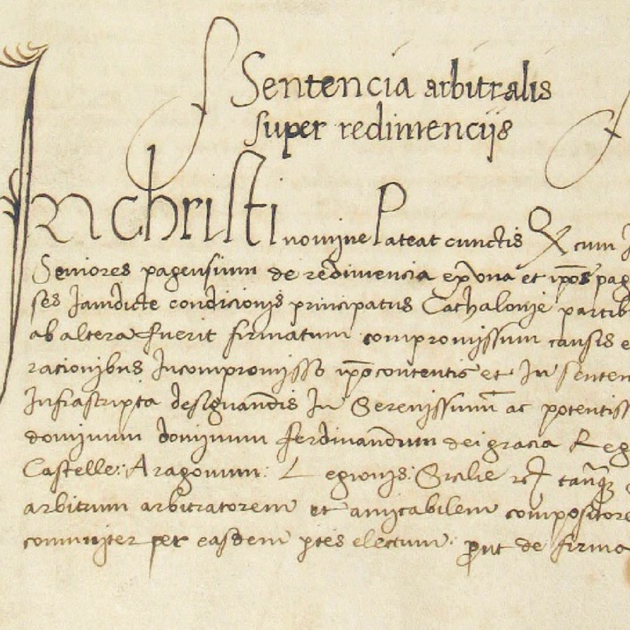 Sentencia arbitralis
super redimencijs
In christi nomine Pateat cunctis Q cum
Seniores pagensium de redimencia ex una et ipos pag
ses Jamdicte condicionis principatus Cathalonie partib
ab altera fuerit firmatum compromissum causis e
rationibus Incompromisso ipo contentis et In senten
Infrascripta designandis In Serenissimum ac potentiss
dominum dominum ferdinandum dei gracia Reg
Castelle: Aragonum: Legionis: Sicilie tanq
arbitrum arbitratorem et amicabilem compositore
comuniter per easdem ptes electum: prout de firma